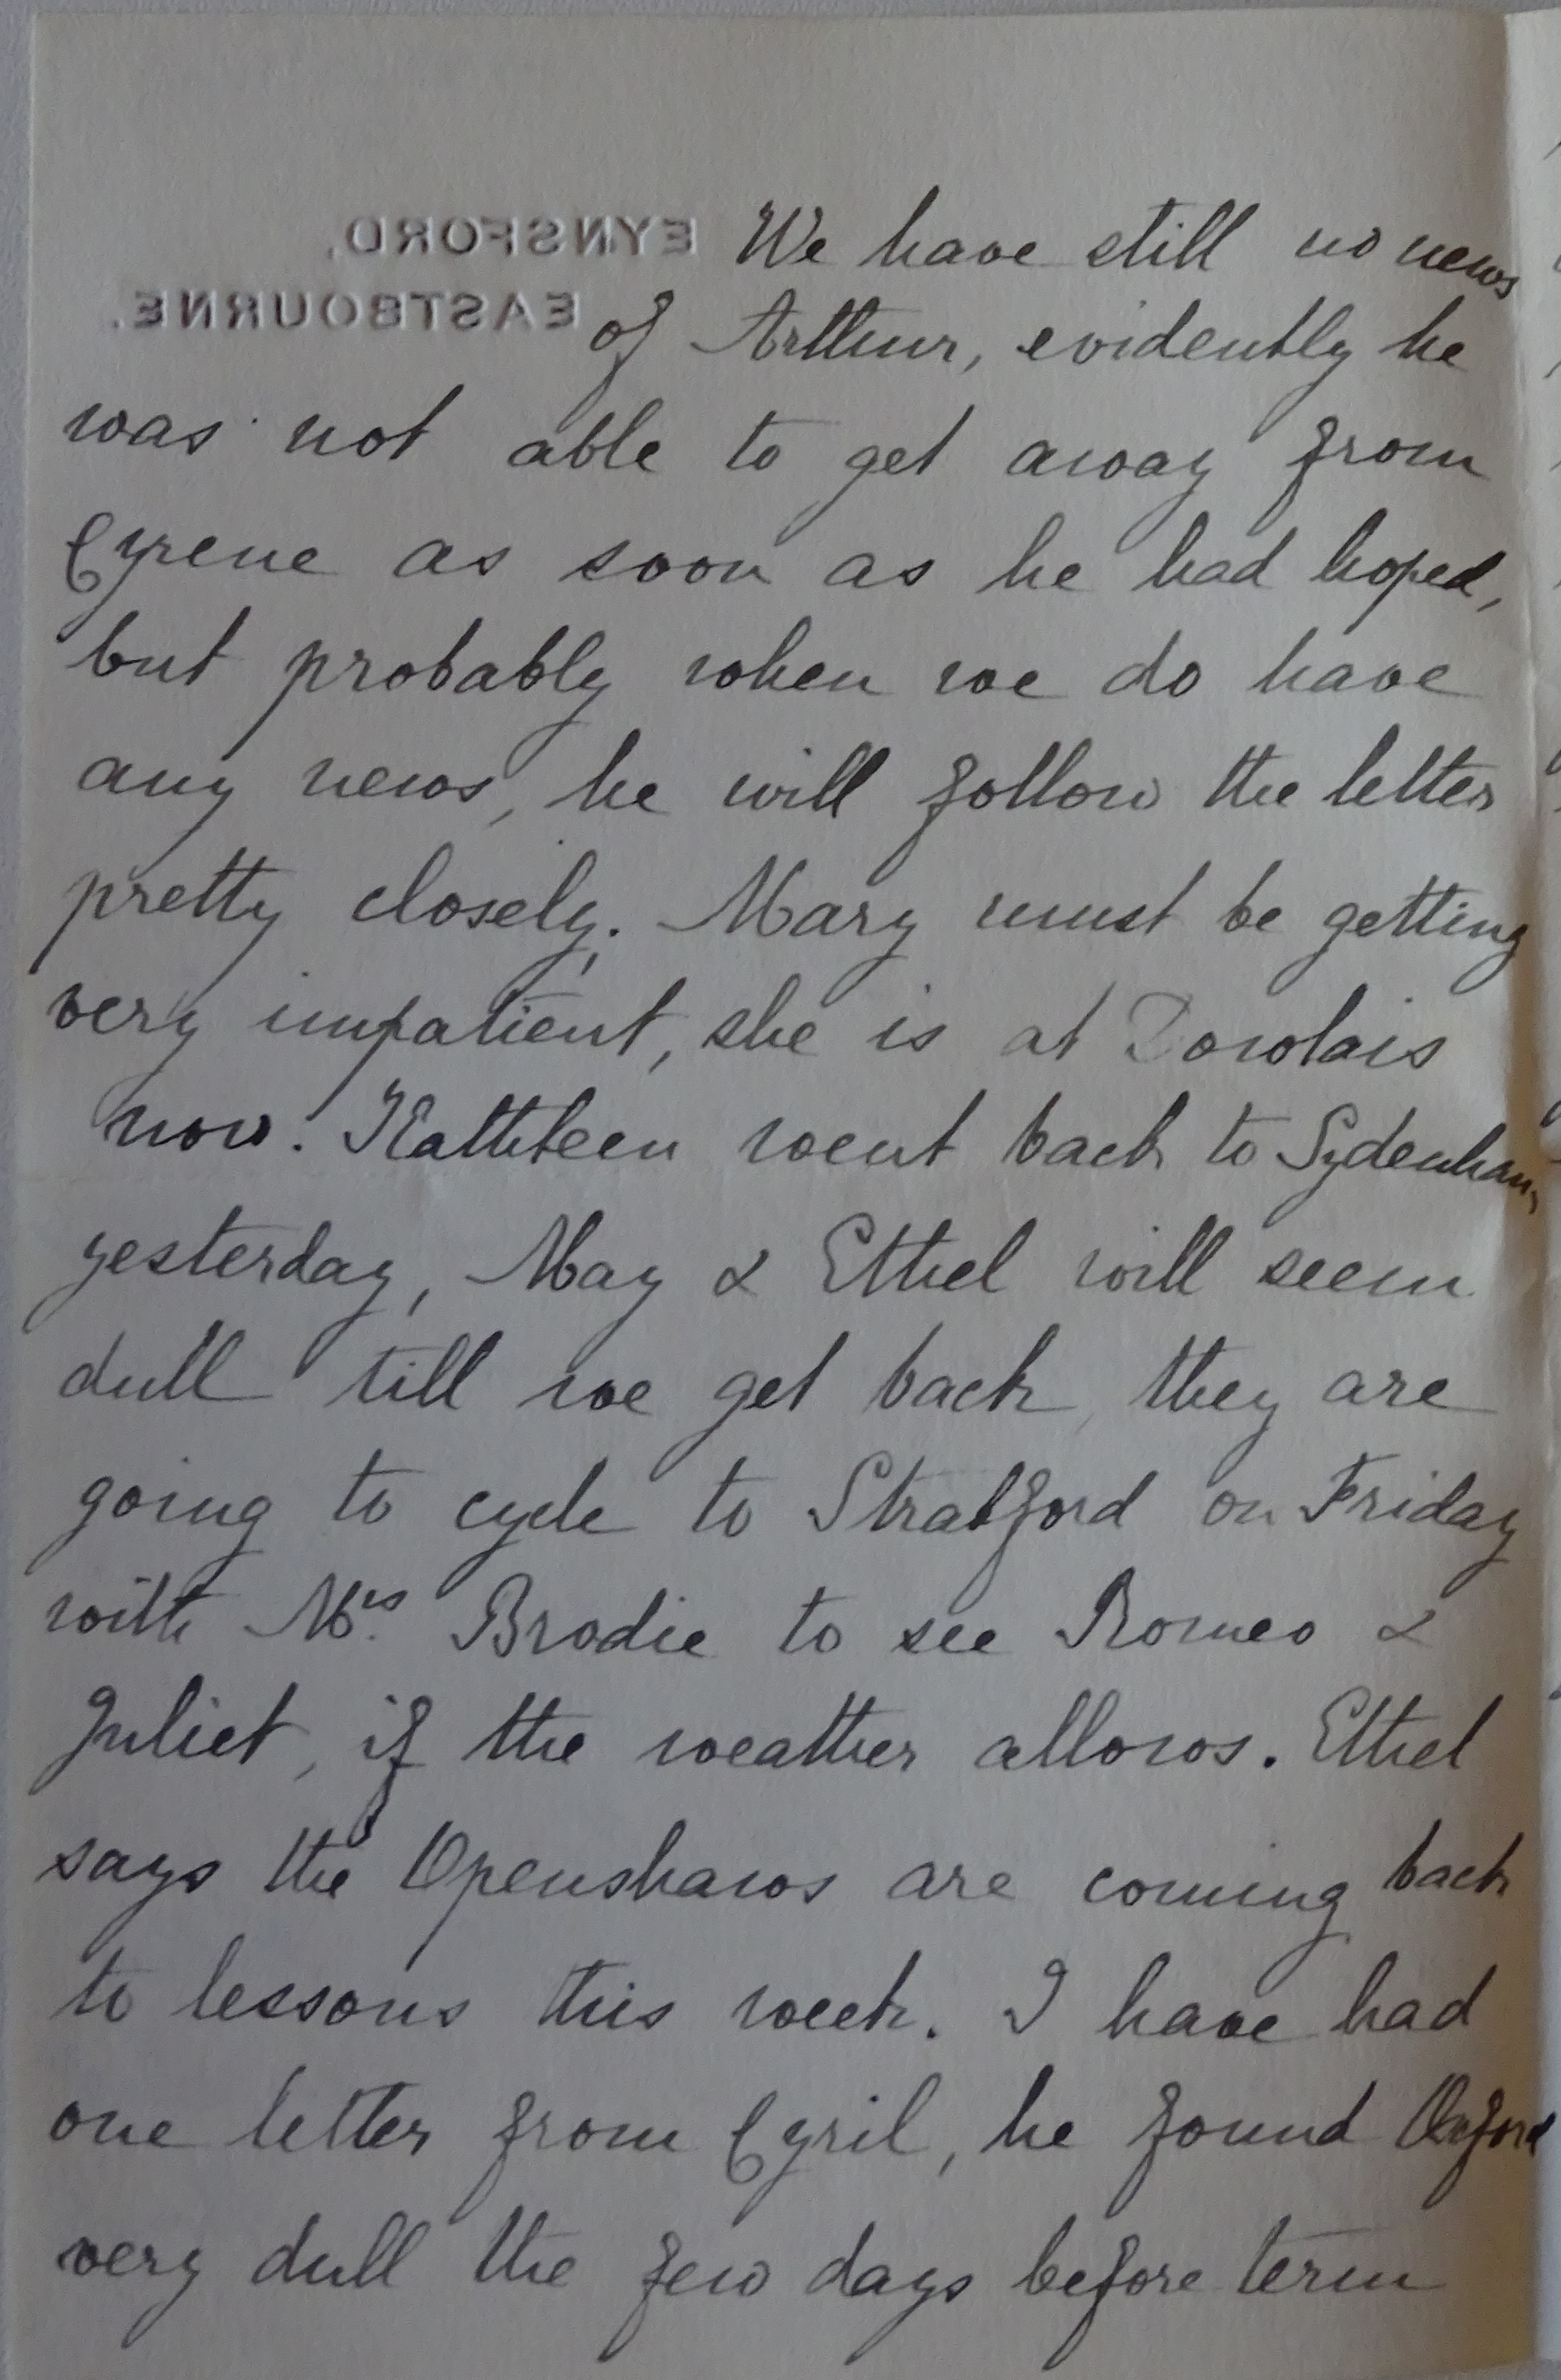 EYNSFORD,
EASTBOURNE.
We have still no news
of Arthur, evidently he
was not able to get away from
Cyrene as soon as he had hoped,
but probably when we do have
any news, he will follow the letter
pretty closely. Mary must be getting
very impatient, she is at Dowlais
now. Kathleen went back to Sydenham
yesterday, May & Ethel will seem
dull till we get back, they are
going to cycle to Stratford on Friday
with Mrs. Brodie to see Romeo &
Juliet, if the weather allows. Ethel
says the Openshaws are coming back
to lessons this week. I have had
one letter from Cyril, he found Oxford
very dull the few days before term